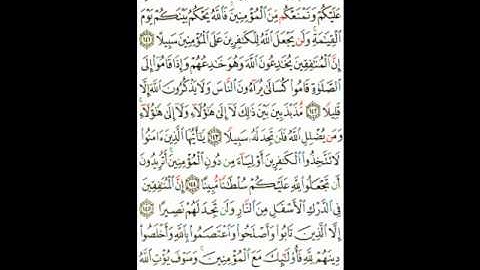 عَلَيْكُمْ وَنَمْنَعْكُم مِّنَ ٱلْمُؤْمِنِينَ ۚ فَٱللَّهُ يَحْكُمُ بَيْنَكُمْ يَوْمَ
ٱلْقِيَٰمَةِ ۗ وَلَن يَجْعَلَ ٱللَّهُ لِلْكَٰفِرِينَ عَلَى ٱلْمُؤْمِنِينَ سَبِيلًا ١٤١
إِنَّ ٱلْمُنَٰفِقِينَ يُخَٰدِعُونَ ٱللَّهَ وَهُوَ خَٰدِعُهُمْ وَإِذَا قَامُوٓا۟ إِلَى
ٱلصَّلَوٰةِ قَامُوا۟ كُسَالَىٰ يُرَآءُونَ ٱلنَّاسَ وَلَا يَذْكُرُونَ ٱللَّهَ إِلَّا
قَلِيلًا ١٤٢ مُّذَبْذَبِينَ بَيْنَ ذَٰلِكَ لَآ إِلَىٰ هَٰٓؤُلَآءِ وَلَآ إِلَىٰ هَٰٓؤُلَآءِ ۚ
وَمَن يُضْلِلِ ٱللَّهُ فَلَن تَجِدَ لَهُۥ سَبِيلًا ١٤٣ يَٰٓأَيُّهَا ٱلَّذِينَ ءَامَنُوا۟
لَا تَتَّخِذُوا۟ ٱلْكَٰفِرِينَ أَوْلِيَآءَ مِن دُونِ ٱلْمُؤْمِنِينَ ۚ أَتُرِيدُونَ
أَن تَجْعَلُوا۟ لِلَّهِ عَلَيْكُمْ سُلْطَٰنًا مُّبِينًا ١٤٤ إِنَّ ٱلْمُنَٰفِقِينَ
فِى ٱلدَّرْكِ ٱلْأَسْفَلِ مِنَ ٱلنَّارِ وَلَن تَجِدَ لَهُمْ نَصِيرًا ١٤٥
إِلَّا ٱلَّذِينَ تَابُوا۟ وَأَصْلَحُوا۟ وَٱعْتَصَمُوا۟ بِٱللَّهِ وَأَخْلَصُوا۟
دِينَهُمْ لِلَّهِ فَأُو۟لَٰٓئِكَ مَعَ ٱلْمُؤْمِنِينَ ۖ وَسَوْفَ يُؤْتِ ٱللَّهُ